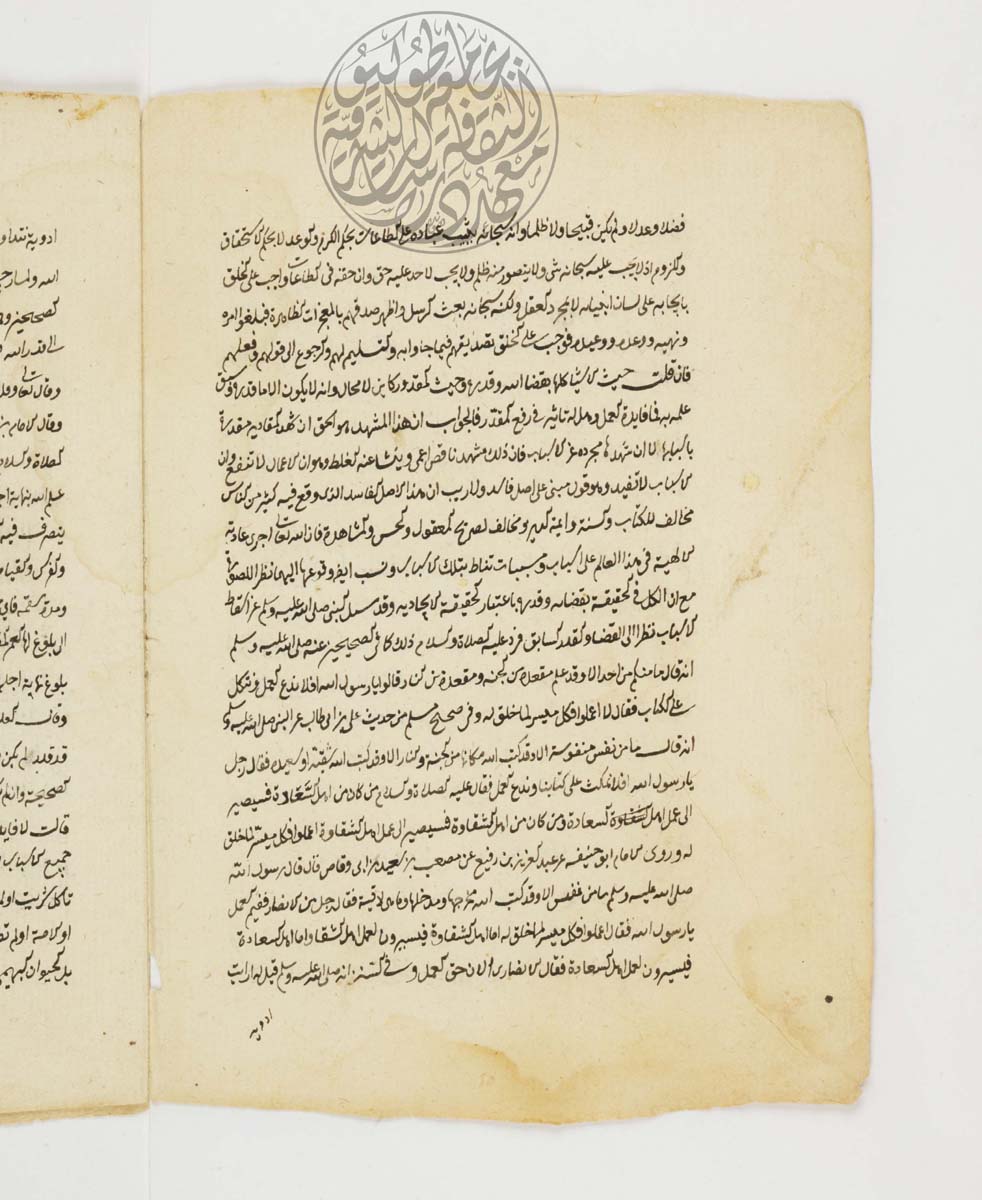 فضلا وعدلا ولم يكن قبيحا ولا ظلما وانه سبحانه يثيب عباده على الطاعات بحكم الكرم والوعد لا بحكم الاستحقاق
واللزوم اذ لا يجب عليه سبحانه شى ولا يتصور منه ظلم ولا يجب لاحد عليه حق وان حقه فى الطاعات واجب على الخلق
بايجابه على لسان انبيائه لا بمجرد العقل ولكنه سبحانه بعث الرسل واظهر صدقهم بالمعجزات الظاهرة فبلغوا امره
ونهيه ووعده ووعيده فوجب على الخلق تصديقهم فيما جاوا به والتسليم لهم والرجوع الى قولهم وفعلهم
فان قلت حيث الاشيا كلها بقضا الله وقدره وحيث المقدور كاين لا محال وانه لا يكون الا ما قدره وسبق
علمه به فما فايدة العمل وهل له تاثير فى رفع المقدر فالجواب ان هذا المشهد هو الحق ان شهد المقادير مقدرة
باسبابها لا ان شهدها مجرده عن الاسباب فان ذلك مشهد ناقص اعمى وينشا عنه الغلط وهو ان الاعمال لا تنفع وان
الاسباب لا تفيد وهو قول مبنى على اصل فاسد ولا ريب ان هذا الاصل الفاسد الذى وقع فيه كثير من الناس
مخالف للكتاب والسنة وايمة الدين ومخالف لصريح المعقول والحس والمشاهدة فان الله تعالى اجرى عادته
الالهية فى هذا العالم على اسباب ومسببات تناط بتلك الاسباب ونسب ايض وقوعها اليهما نظر اللصورة
مع ان الكل فى الحقيقة بقضايه وقدره باعتبار الحقيقة الايجاديه وقد سيل النبى صلى الله عليه وسلم عن اسقاط
الاسباب نظرا الى القضا والقدر السابق فرد عليه الصلاة والسلام ذلك كما فى الصحيحين عنه صلى الله عليه وسلم
انه قال ما منكم من احد الا وقد علم مقعده من الجنه ومقعده من النار قالوا يا رسول الله افلا ندع العمل ونتكل
على الكتاب فقال لا اعملوا فكل ميسر لما خلق له وفى صحيح مسلم من حديث على بن ابى طالب عن النبى صلى الله عليه وسلم
انه قال ما من نفس منفوسة الا وقد كتب الله مكانها من الجنة والنار الا وقد كتب الله شقية او سعيده فقال رجل
يا رسول الله افلا نمكث على كتابنا وندع العمل فقال عليه الصلاة والسلام من كان من اهل السعادة فسيصير
الى عمل اهل السعادة ومن كان من اهل الشقاوة فسيصير الى عمل اهل الشقاوة اعملوا فكل ميسر لما خلق
له وروى الامام ابو حنيفه عن عبد العزيز بن رفيع عن مصعب بن سعيد بن ابى وقاص قال قال رسول الله
صلى الله عليه وسلم ما من نفس الا وقد كتب الله مخرجها ومدخلها وما هى لاقية فقال رجل من الانصار ففيم العمل
يا رسول الله فقال اعملوا فكل ميسر لما خلق له اما اهل الشقاوة فييسرون لعمل اهل الشقا واما اهل السعادة
فييسرون لعمل اهل السعادة فقال الانصارى الان حق العمل وفى السنن انه صلى الله عليه وسلم قيل له ارايت
ادويه